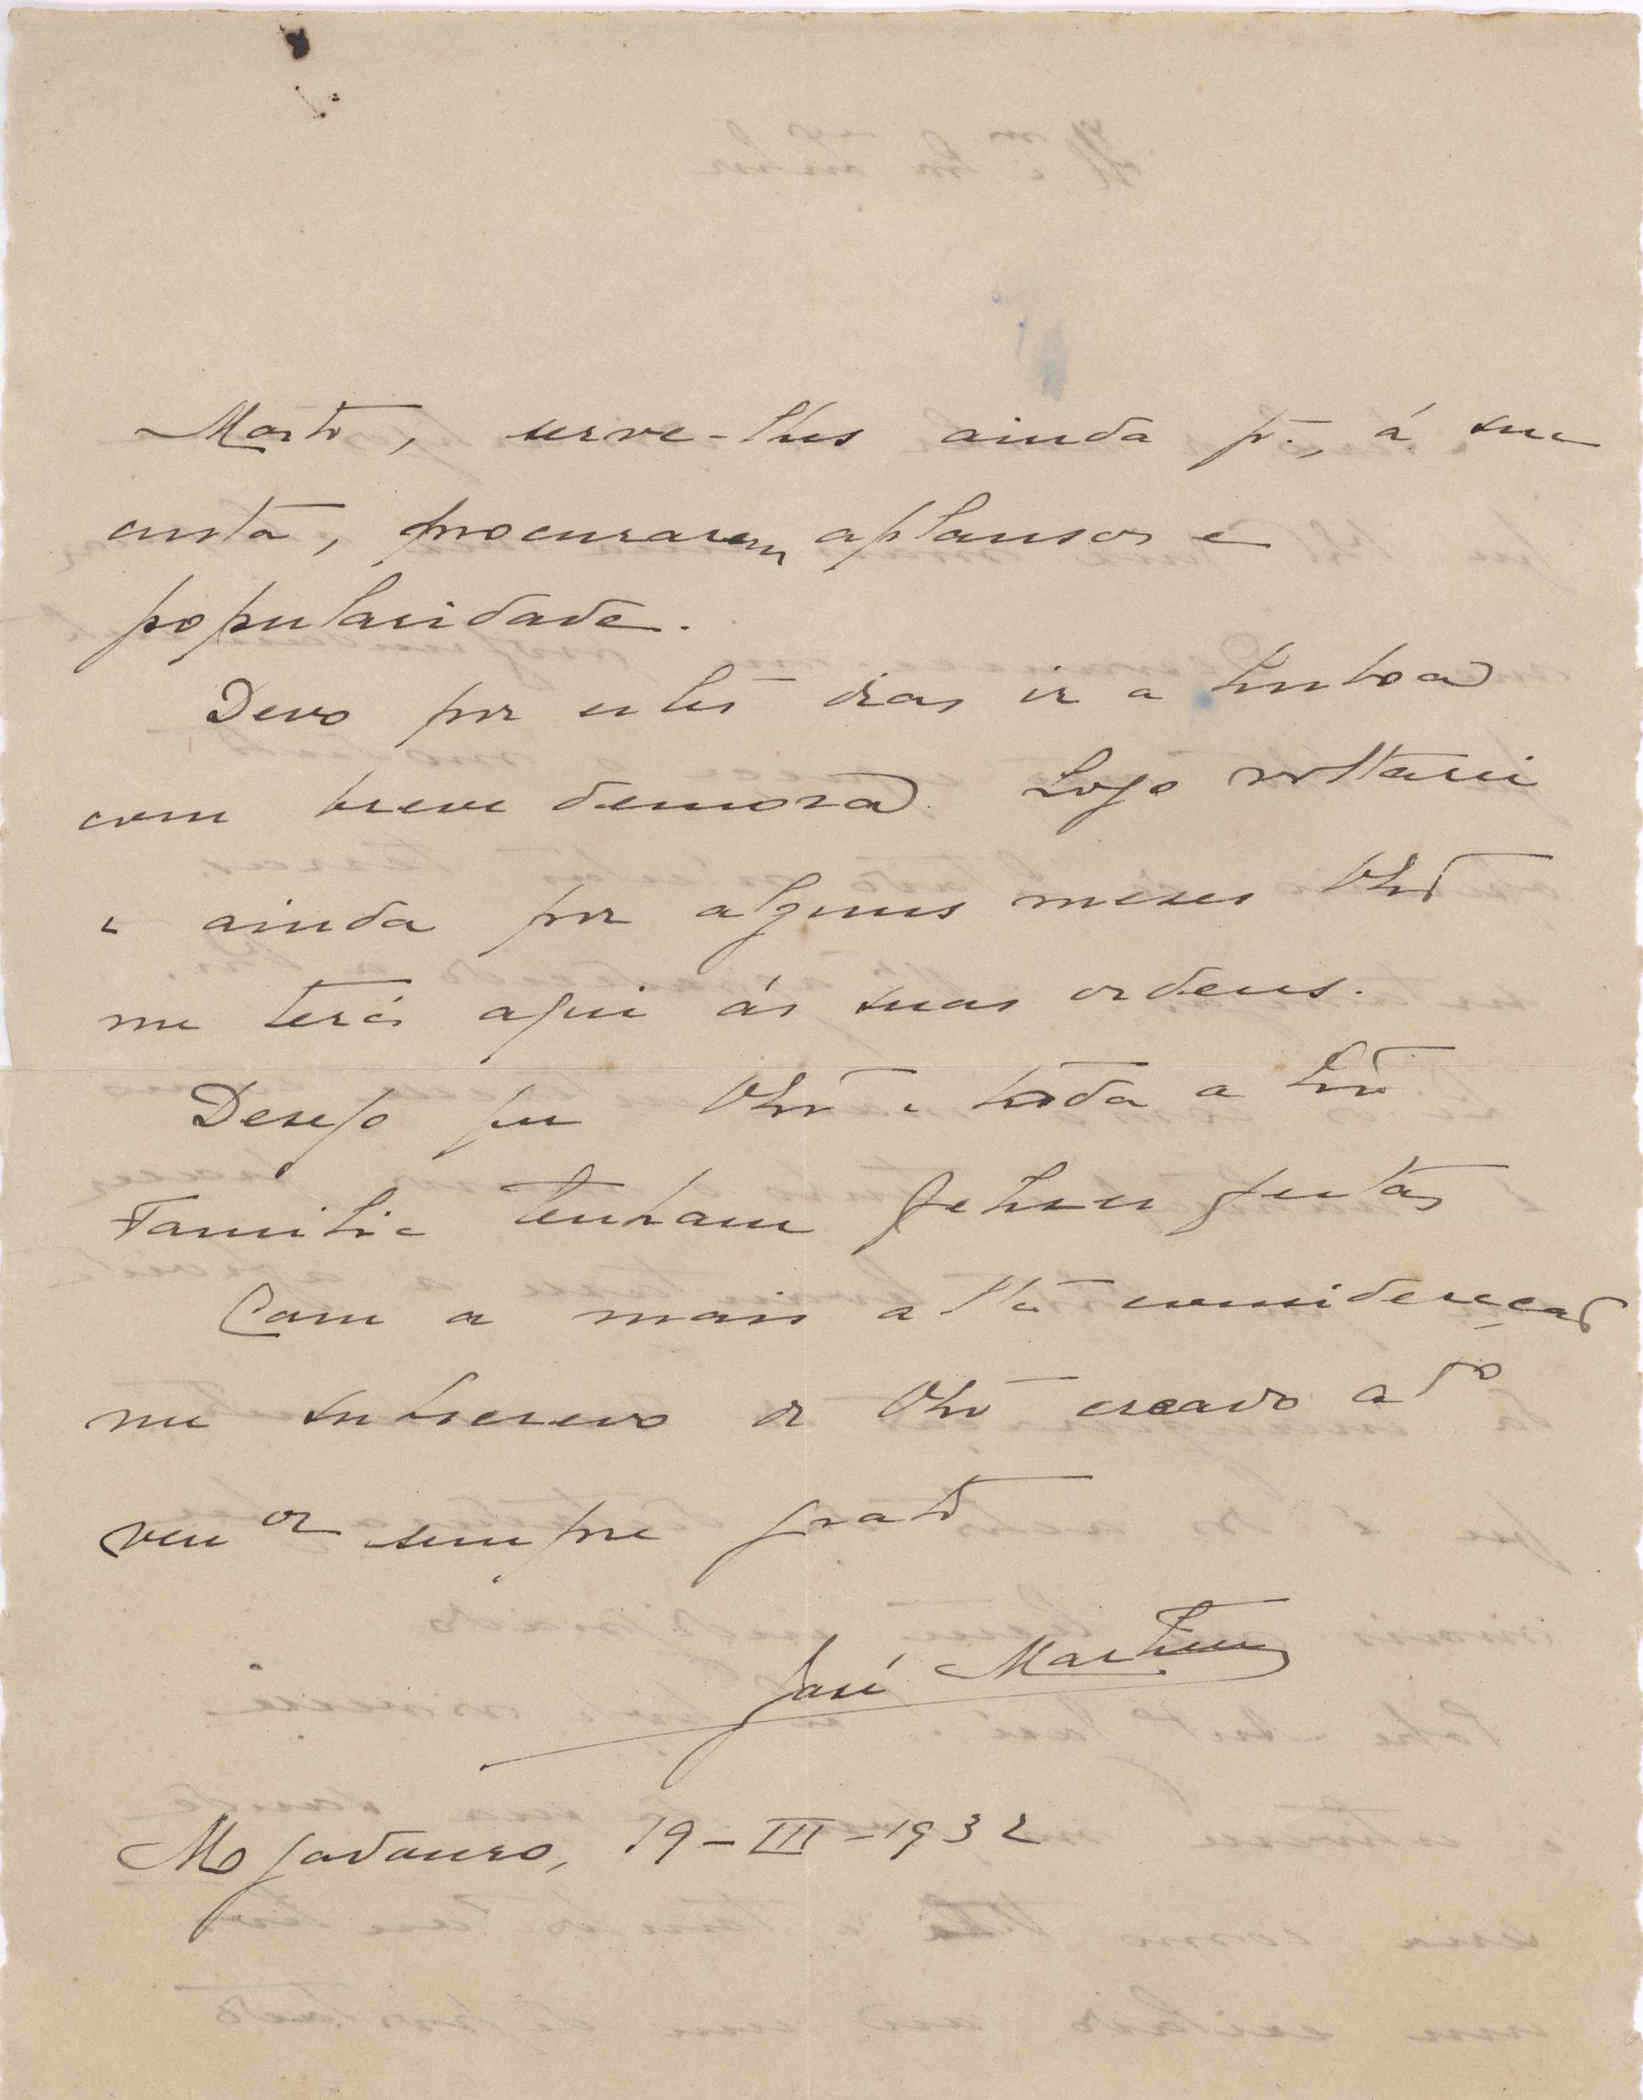 Morto, serve-lhes ainda pª, á sua
custa, procurarem aplausos e
popularidade.
Devo por estes dias ir a Lisboa
com breve demora. Logo voltarei
e ainda por alguns meses
me terá aqui ás suas ordens.
Desejo que e toda a
Familia tenham felizes festas
Com a mais alta consideração
me subscrevo de creado
ven.or sempre grato
José Martins
Mogadouro, 19-III-1932